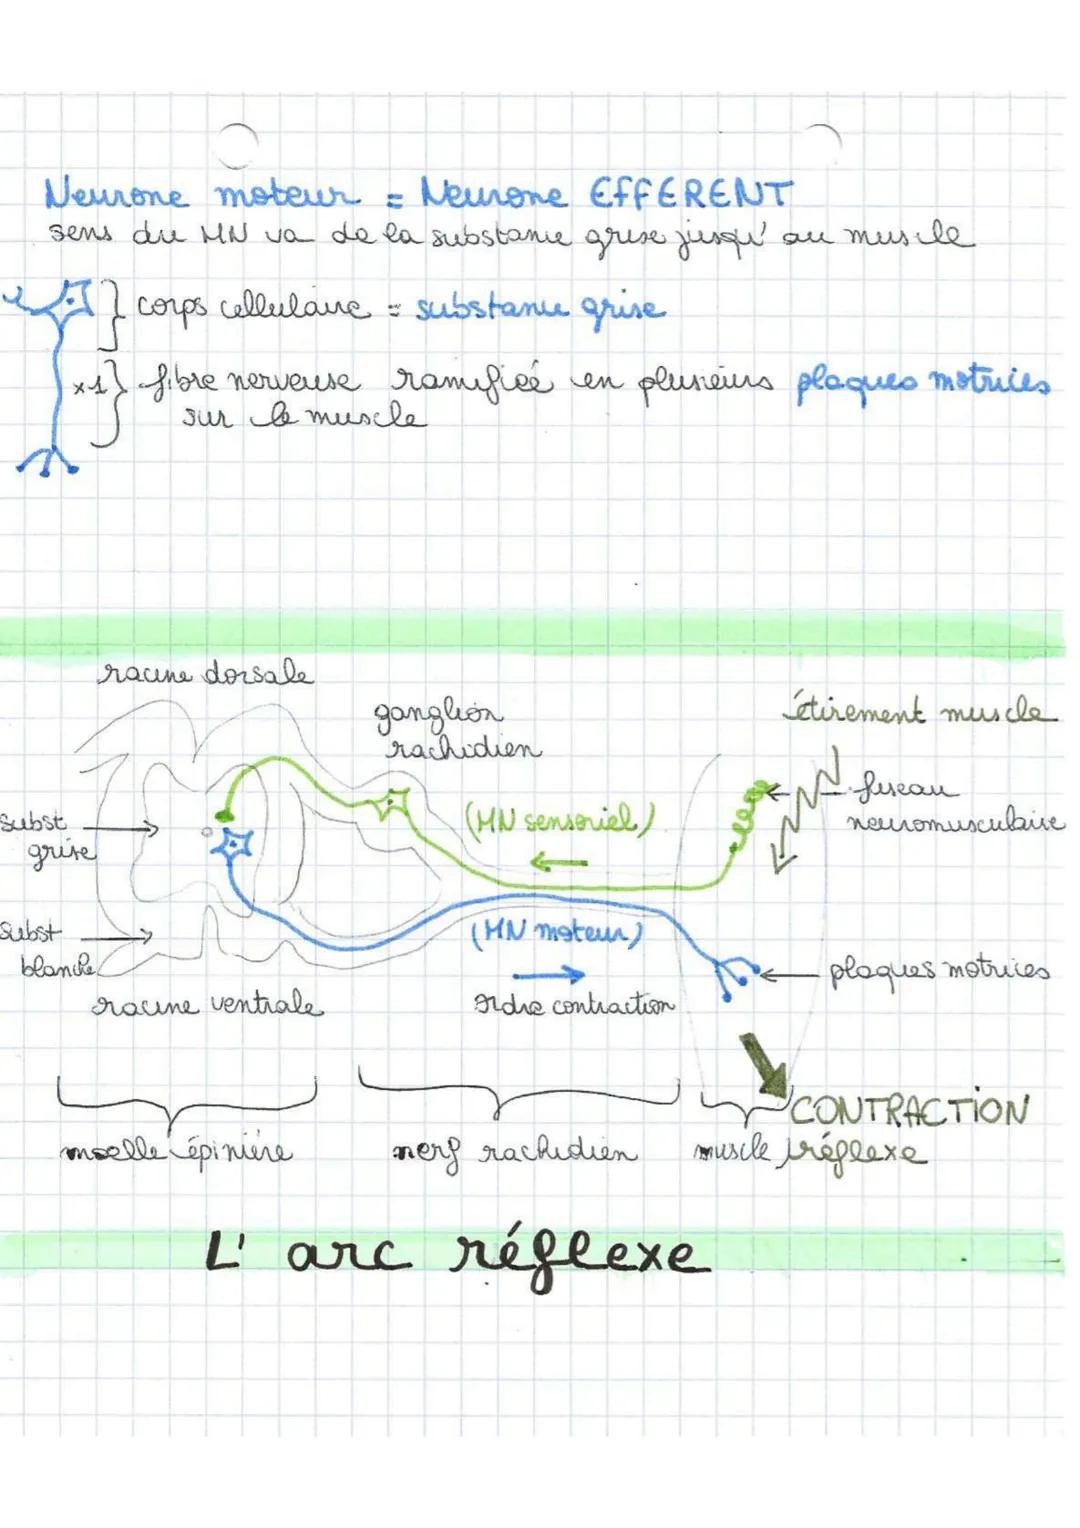 Neurone moteur = Neurone EFFERENT
sens du MN va de la substance grise jusqu'au muscle
corps cellulaire = substance grise
x1 fibre nerveuse ramifiée en plusieurs plaques motrices
sur le muscle
racine dorsale
ganglion
rachidien
étirement muscle
(MN sensoriel)
fuseau
neuromusculaire
subst
grise
subst
blanche
(MN moteur)
plaques motrices
racine ventrale
ordre contraction
CONTRACTION
réflexe
moelle épinière
nerf rachidien
muscle
L'arc réflexe